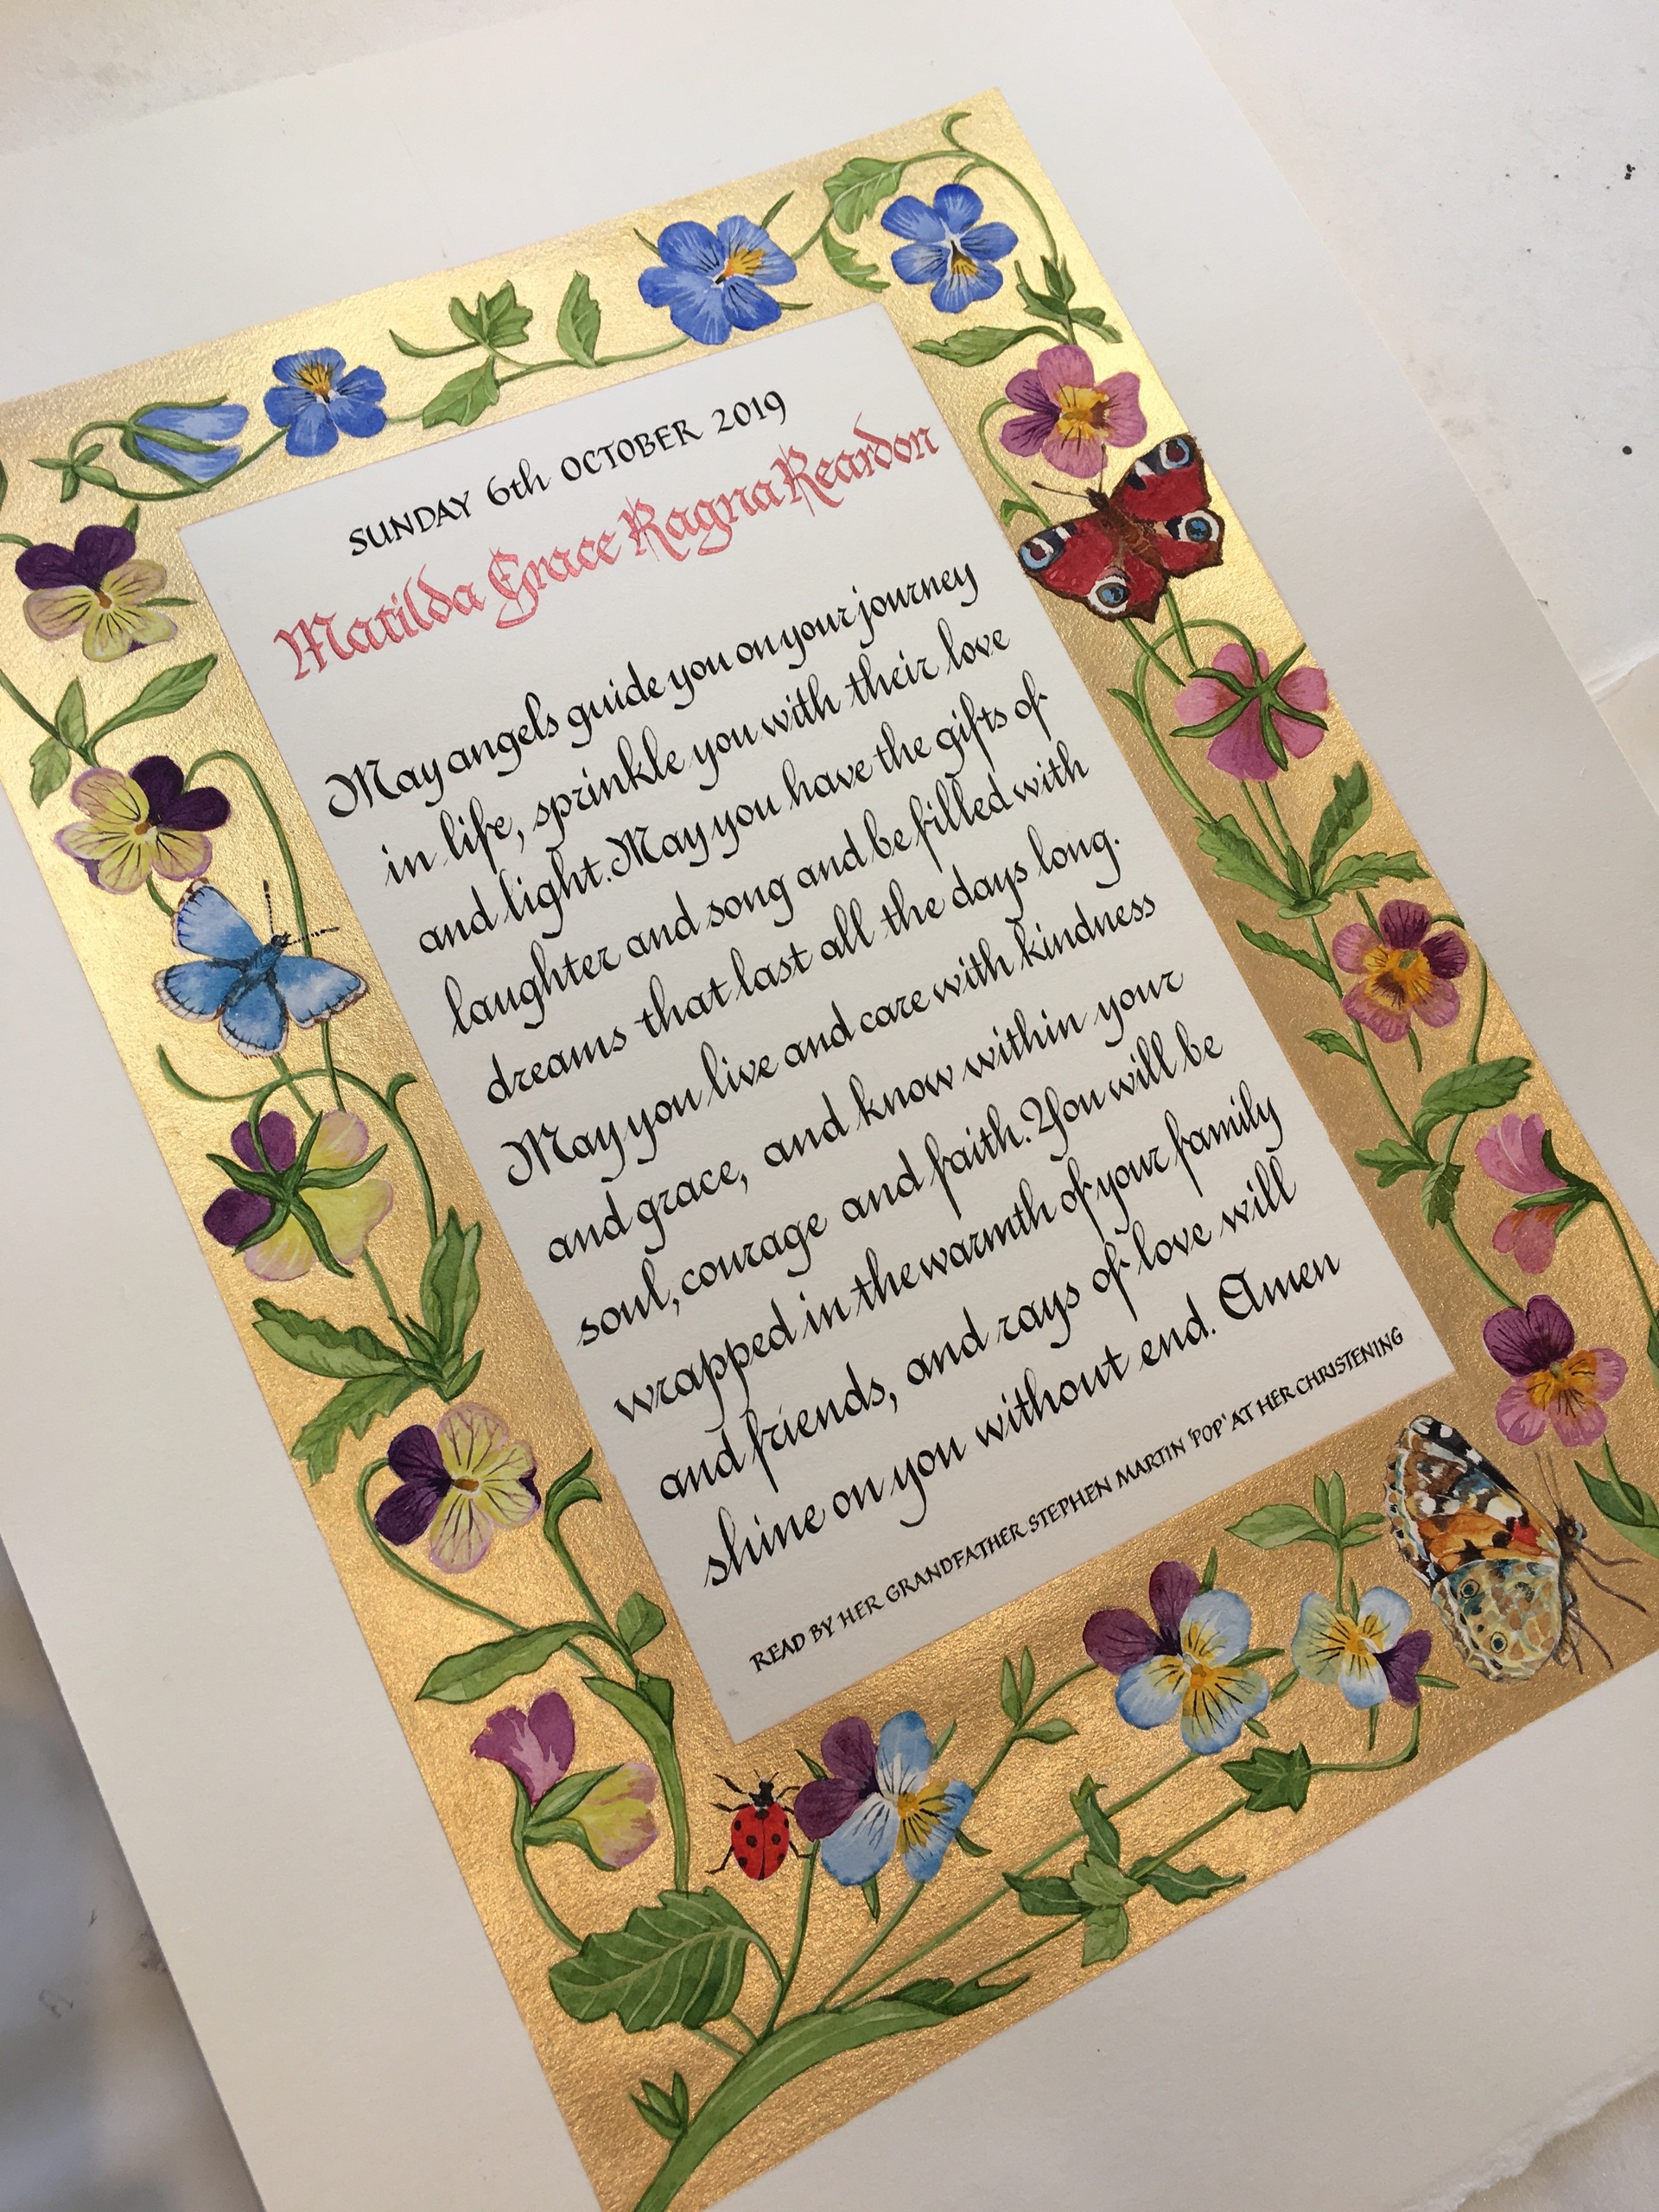 SUNDAY 6th OCTOBER 2019
Matilda Grace Ragna Reardon
May angels guide you on your journey
in life, sprinkle you with their love
and light. May you have the gifts of
laughter and song and be filled with
dreams that last all the days long.
May you live and care with kindness
and grace, and know within your
soul, courage and faith. You will be
wrapped in the warmth of your family
and friends, and rays of love will
shine on you without end. Amen
READ BY HER GRANDFATHER STEPHEN MARTIN 'POP' AT HER CHRISTENING